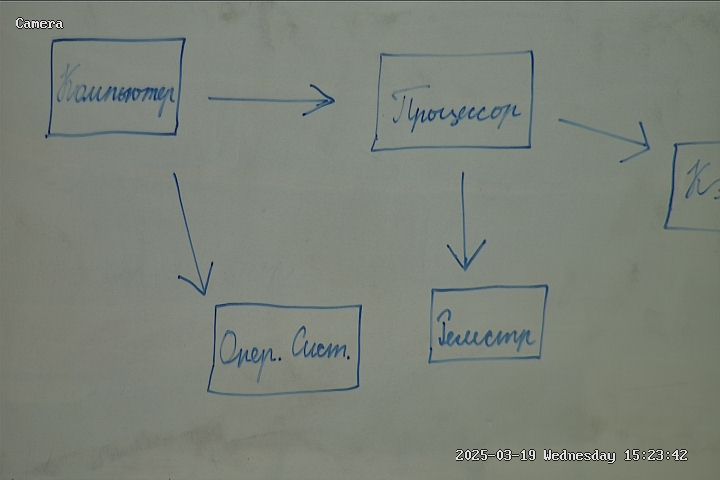 Camera
Компьютер
Процессор
Опер. Сист.
2025-03-19 Wednesday 15:23:42